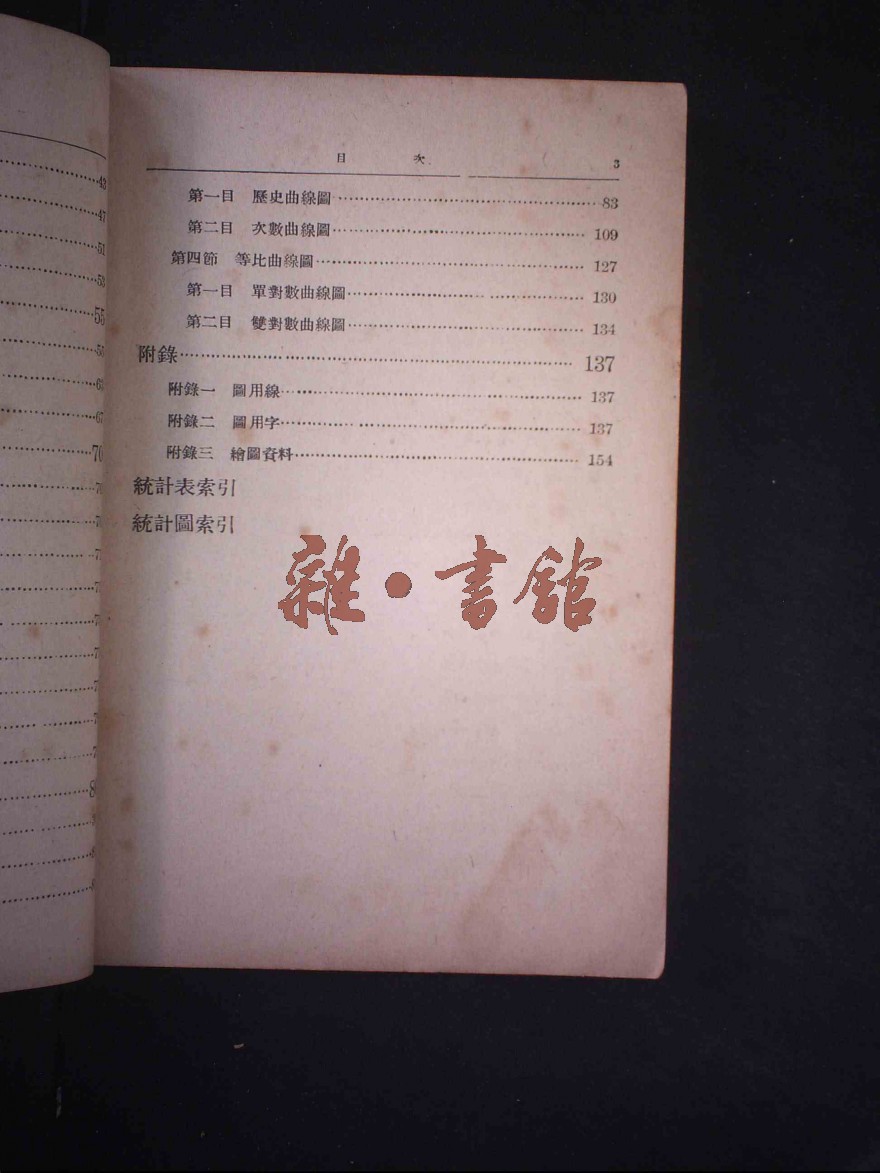 目 次 3
第一目 歷史曲線圖 83
第二目 次數曲線圖 109
第四節 等比曲線圖 127
第一目 單對數曲線圖 130
第二目 雙對數曲線圖 134
附錄 137
附錄一 圖用線 137
附錄二 圖用字 137
附錄三 繪圖資料 154
統計表索引
統計圖索引
雜·書館
43
47
51
53
55